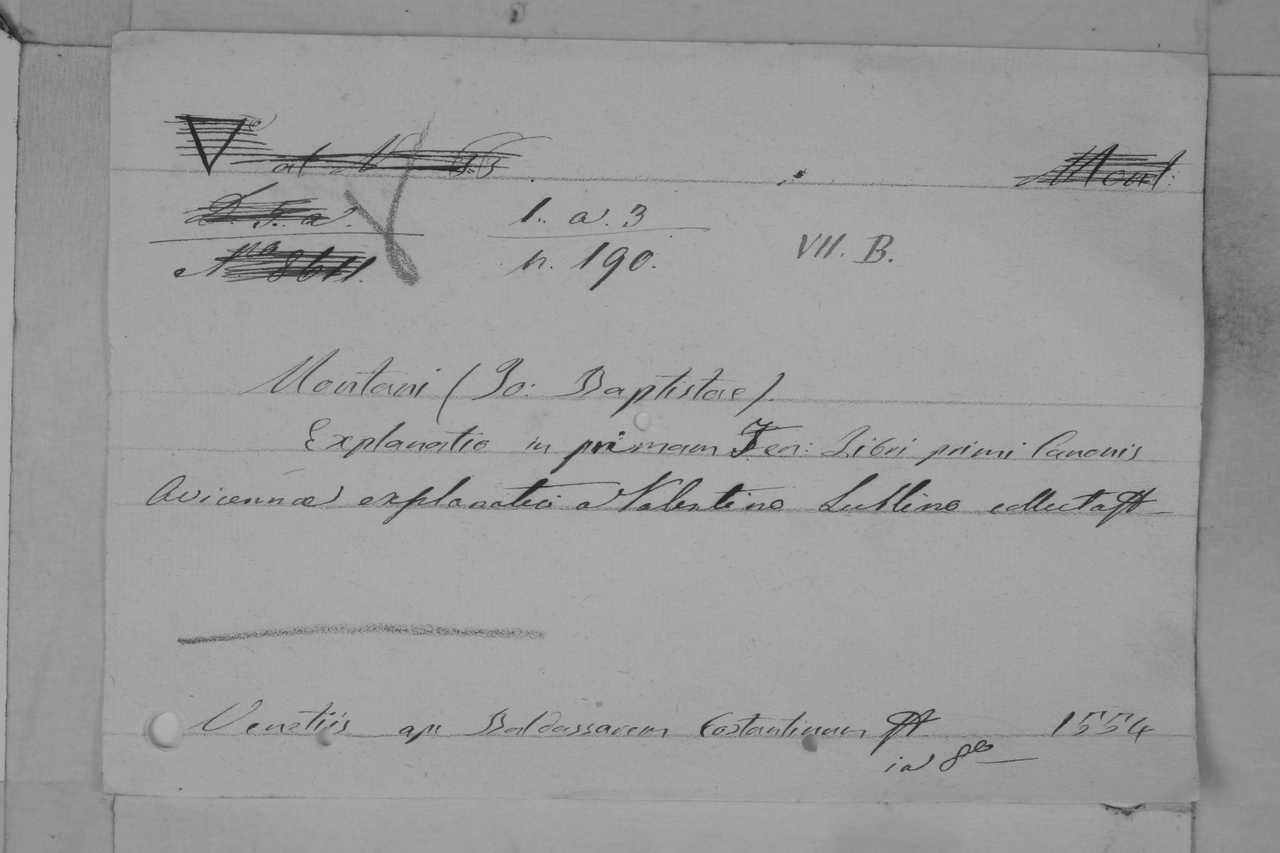 1. a. 3
n. 190.
VII. B.
Mont.
Montani (Jo: Baptistae).
Explanatio in primam Fen: Libri primi Canonis
Avicennae explanatio a Valentino Lublino collecta
Venetiis ap. Baldassarem Costantinum 1554
in 8º